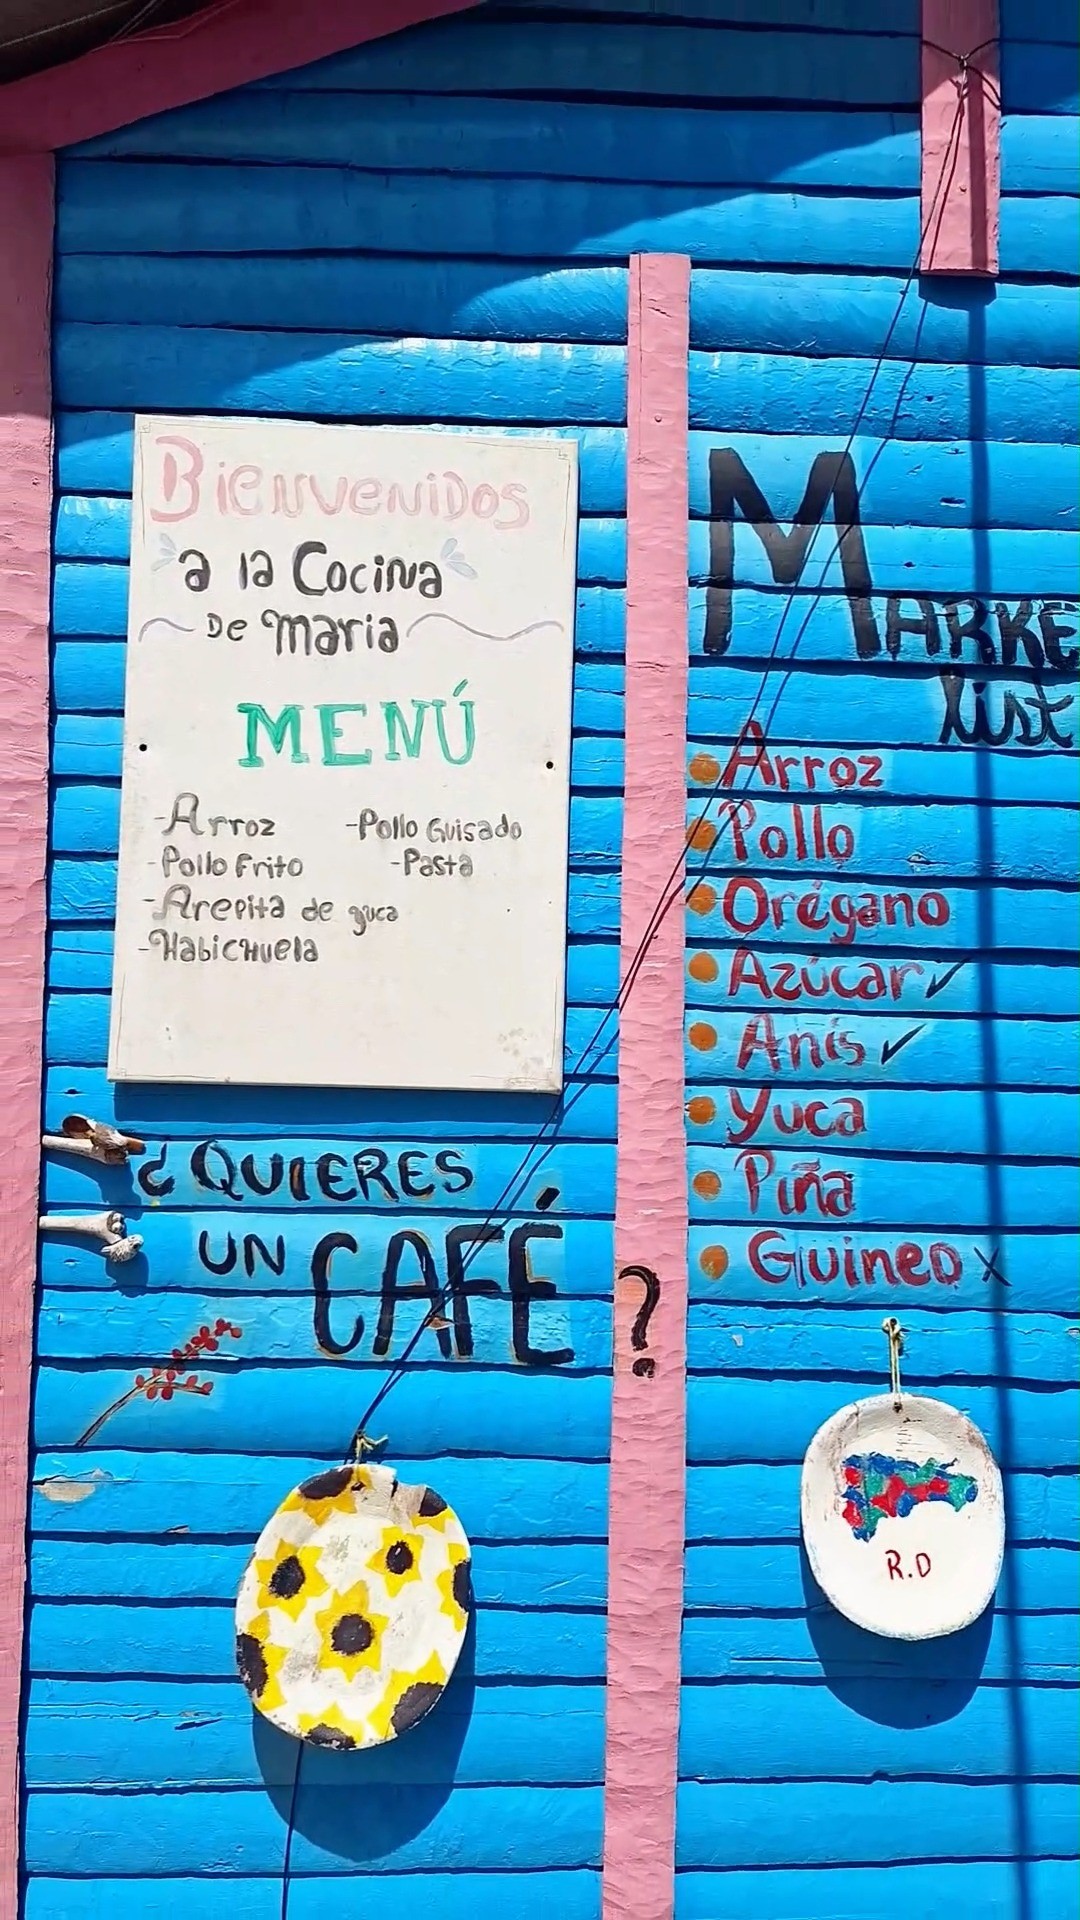 Bienvenidos
a la Cocina
De Maria
MENÚ
-Arroz
-Pollo Guisado
-Pollo Frito
-Pasta
-Arepita de yuca
-Habichuela
¿QUIERES
UN CAFÉ?
MARKE
list
Arroz
Pollo
Orégano
Azúcar ✓
Anís ✓
Yuca
Piña
Guineo x
R.D